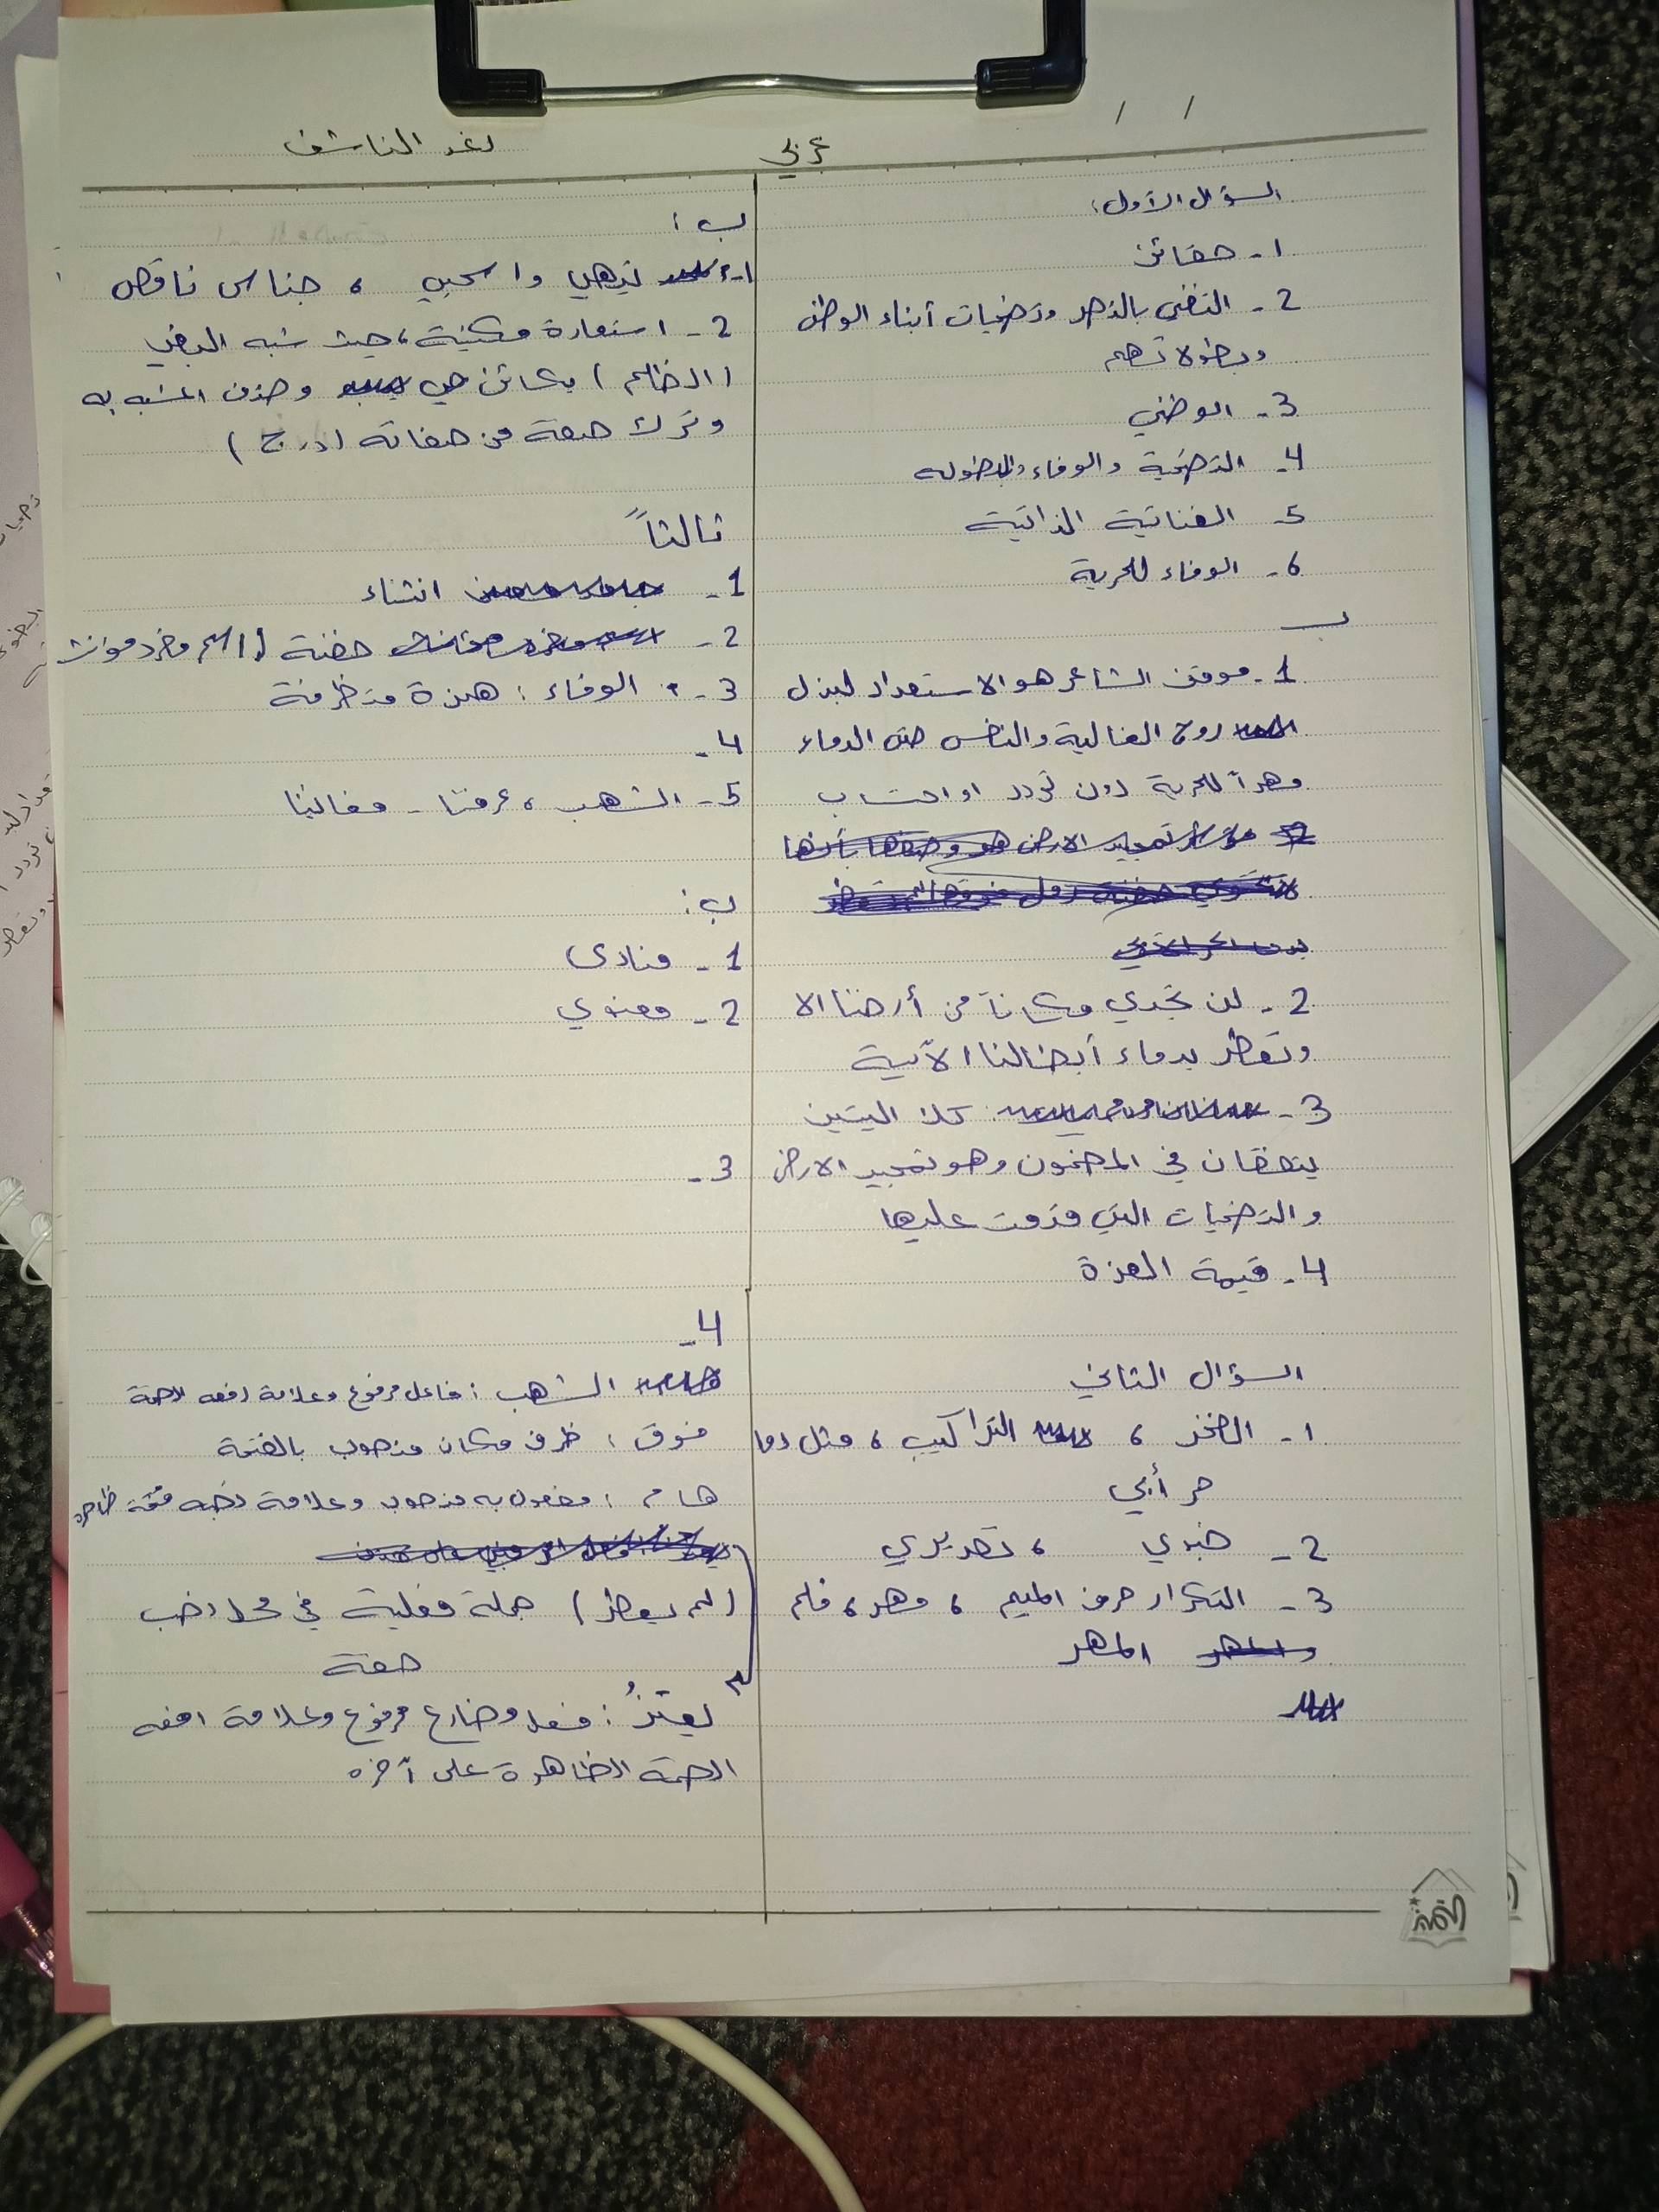 عربي
رغد الناشف
/ /
السؤال الأول:
1- حقائق
2- التغني بالنصر وتضحيات أبناء الوطن
وبطولاتهم
3- الوطني
4- التضحية والوفاء والبطولة
5- الغنائية الذاتية
6- الوفاء للحرية
ب
1- موقف الشاعر هو الاستعداد لبذل
روح الغالية والنفس حتى الدماء
مهراً للحرية دون تردد او احتساب
2- لن تجدي مكاناً من أرضنا الا
وتعطر بدماء أبطالنا الأبية
3- كلا البيتين
يتفقان في المضمون وهو تمجيد الارض
والتضحيات التي قدمت عليها
4- قيمة العزة
السؤال الثاني
1- الفخر ، التراكيب ، مثل دما
حر أبي
2- خبري ، تقريري
3- التكرار حرف الميم ، مهر ، فلم
المهر
ب:
1- تيهي واسحبي ، جناس ناقص
2- استعارة مكنية ، حيث شبه البغي
(الظلم) بكائن حي وحذف المشبه به
وترك صفة من صفاته (درج)
ثالثاً
1- انشاء
2- حفنة (اسم مفرد مؤنث
3- الوفاء : همزة متطرفة
4-
5- الشهب ، عرفنا - مغانينا
ب:
1- منادى
2- معنوي
3-
4-
الشهب : فاعل مرفوع وعلامة رفعه الضمة
فوق : ظرف مكان منصوب بالفتحة
هام : مفعول به منصوب وعلامة نصبه فتحة ظاهره
(لم يعطر) جملة فعلية في محل نصب
صفة
يعتزُ : فعل مضارع مرفوع وعلامة رفعه
الضمة الظاهرة على آخره
القمة